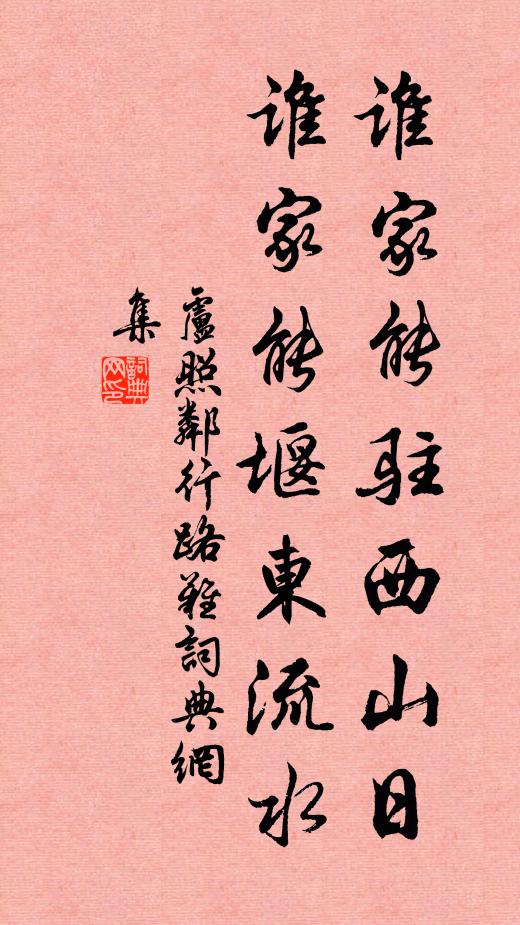 誰家能駐西山日
誰家能堰東流水
盧照鄰行路難詞典網
集
詞典
网印